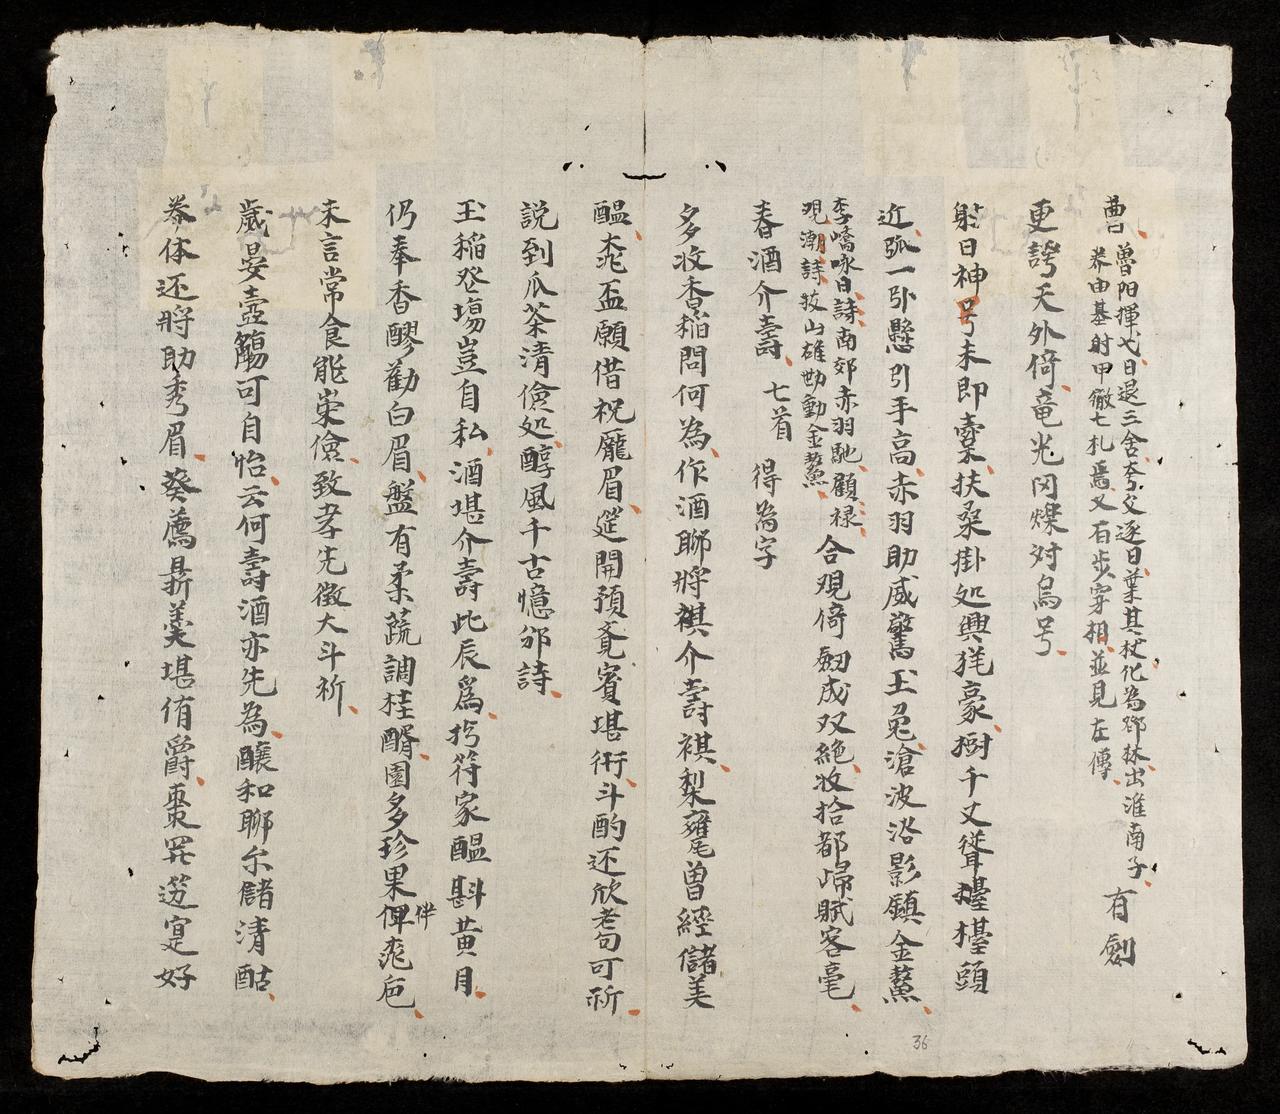 曹 魯陽揮戈日退三舍夸父逐日棄其杖化為鄧林出淮南子 有劍
养由基射甲徹七札焉又百步穿楊並見左傳
更誇天外倚竜光冈爍对烏号
射日神号未即櫜扶桒掛处興犹豪樹千丈聳擡頭
近弧一引懸引手高赤羽助威驚玉兎滄波沿影鎮金鰲
李嶠咏日詩南郊赤羽馳顧禄 合观倚剱成双絶收拾都歸賦客毫
观潮詩拔山雄勢動金鰲
春酒介壽 七首 得為字
多收香稻問何為作酒聊將祺介壽祺梨甕曾經儲美
醖桃盃願借祝龐眉筵開預竟賓堪衎斗酌还欣耇可祈
説到瓜茶清儉処醇風千古憶邠詩
玉稲登場豈自私酒堪介壽此辰爲盻符家醖斟黄月
仍奉香醪勸白眉盤有柔蔬調桂醑園多珍果俾桃卮
伴
未言常食能崇儉致孝先徵大斗祈
歲晏壺觴可自怡云何壽酒亦先為釀和聊尓儲清酤
养体还將助秀眉葵薦鼎羹堪侑爵棗罖選寔好
36